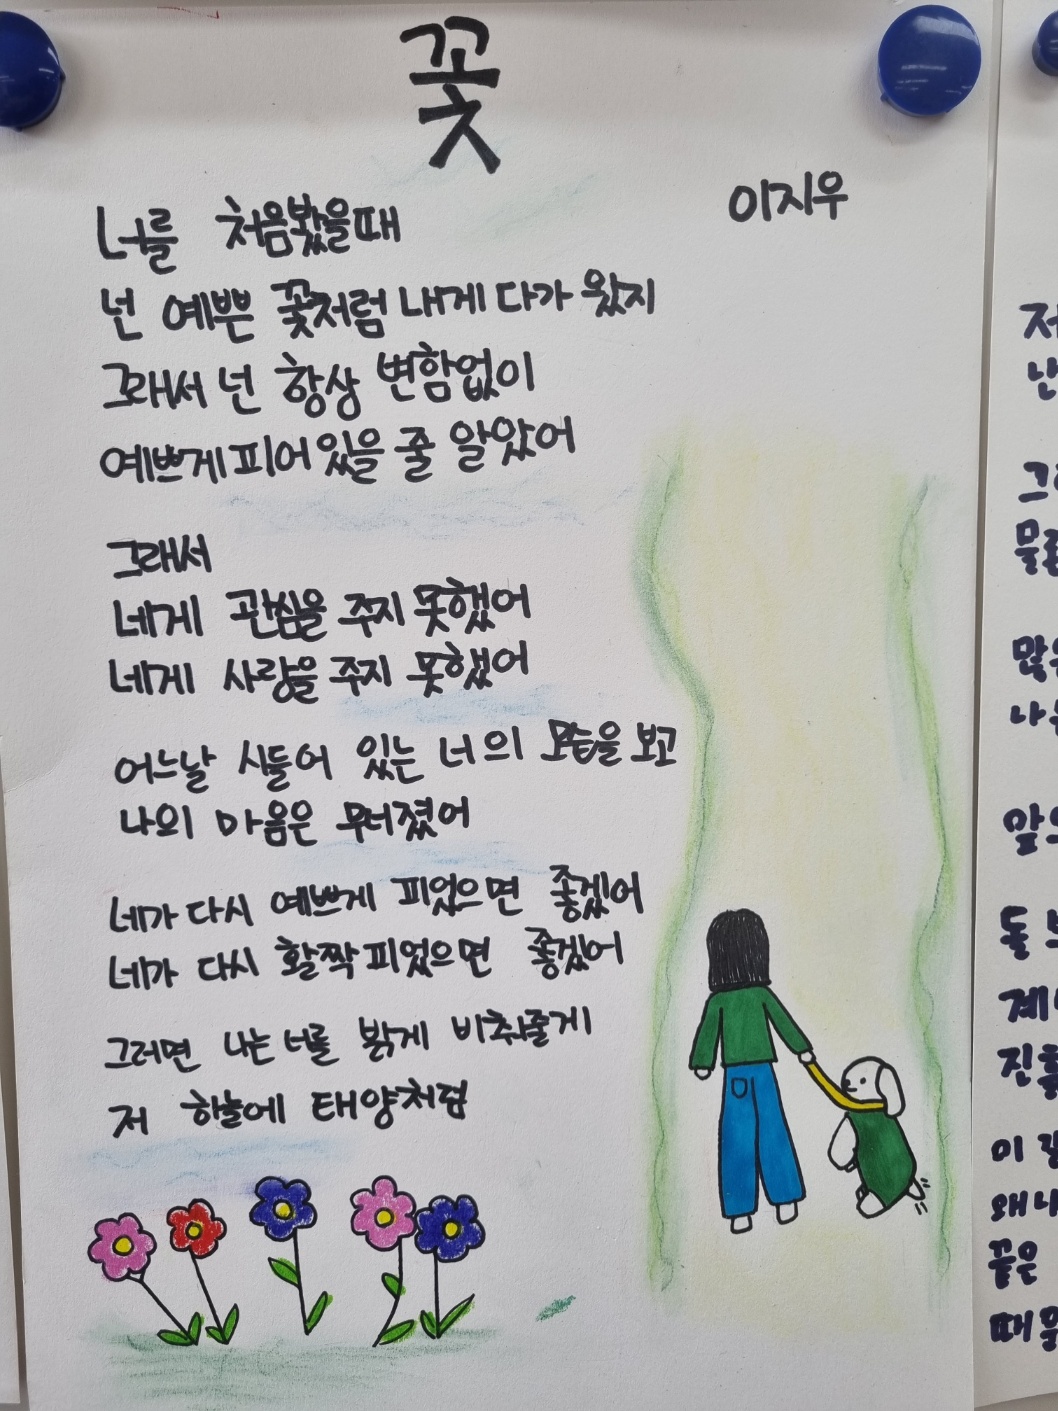 꽃
이지우
너를 처음봤을때
넌 예쁜 꽃처럼 내게 다가 왔지
그래서 넌 항상 변함없이
예쁘게 피어있을 줄 알았어
그래서
네게 관심을 주지 못했어
네게 사랑을 주지 못했어
어느날 시들어 있는 너의 모습을 보고
나의 마음은 무너졌어
네가 다시 예쁘게 피었으면 좋겠어
네가 다시 활짝 피었으면 좋겠어
그러면 나는 너를 밝게 비춰줄게
저 하늘에 태양처럼
저
난
물
많은
앞
돌
계
진
이 길
왜 나
끝은
때